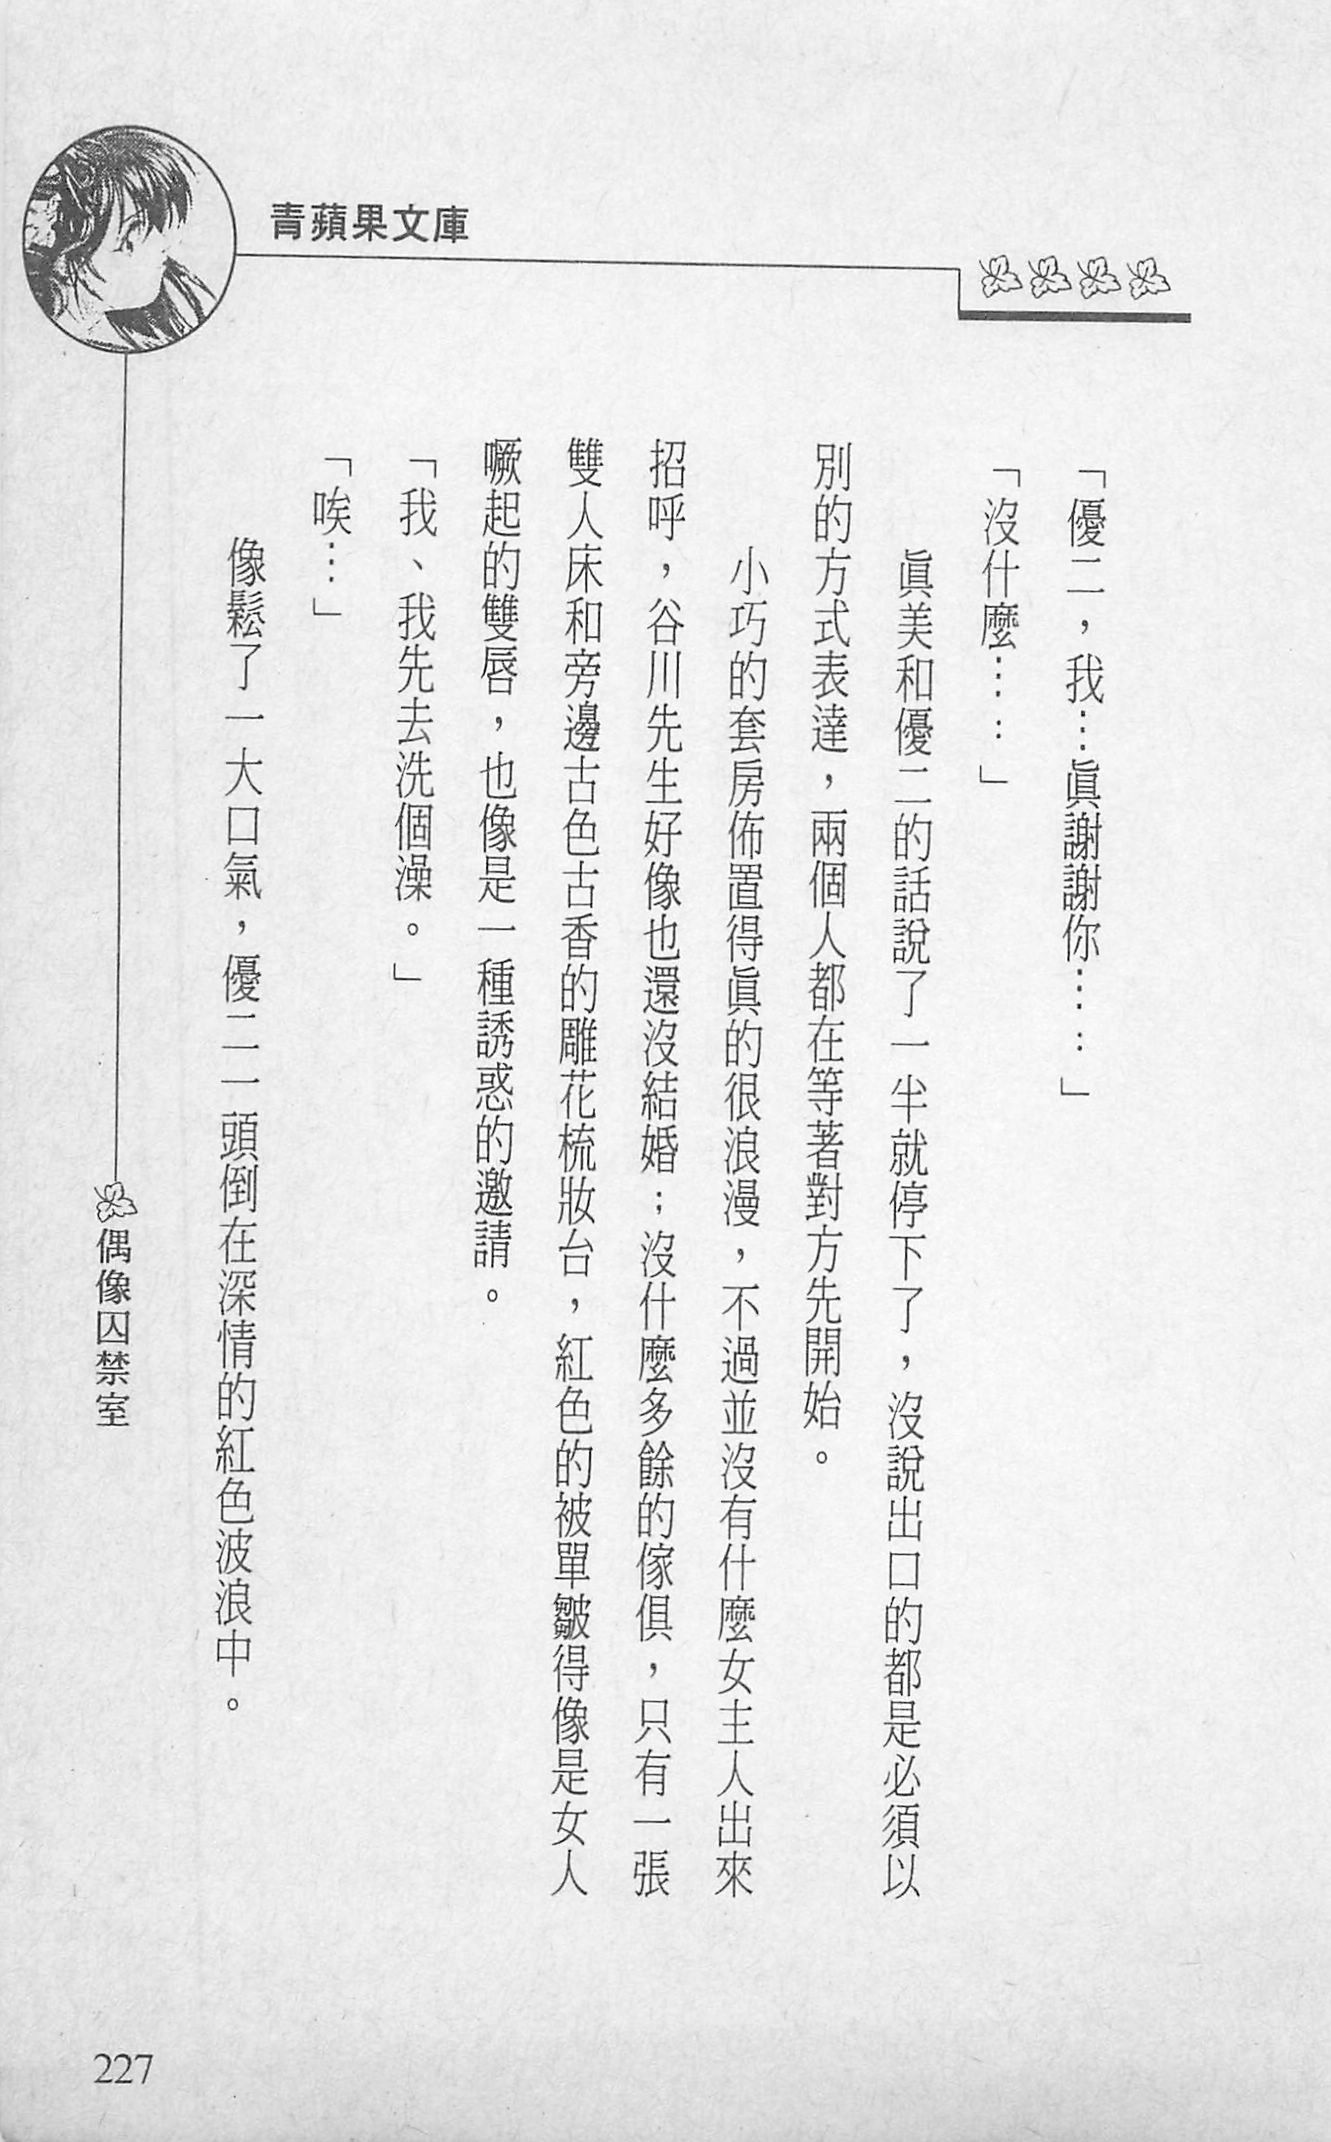 青蘋果文庫
「優二，我…眞謝謝你……」
「沒什麼……」
眞美和優二的話說了一半就停下了，沒說出口的都是必須以
別的方式表達，兩個人都在等著對方先開始。
小巧的套房佈置得眞的很浪漫，不過並沒有什麼女主人出來
招呼，谷川先生好像也還沒結婚；沒什麼多餘的傢俱，只有一張
雙人床和旁邊古色古香的雕花梳妝台，紅色的被單皺得像是女人
噘起的雙唇，也像是一種誘惑的邀請。
「我、我先去洗個澡。」
「唉…」
像鬆了一大口氣，優二一頭倒在深情的紅色波浪中。
偶像囚禁室
227